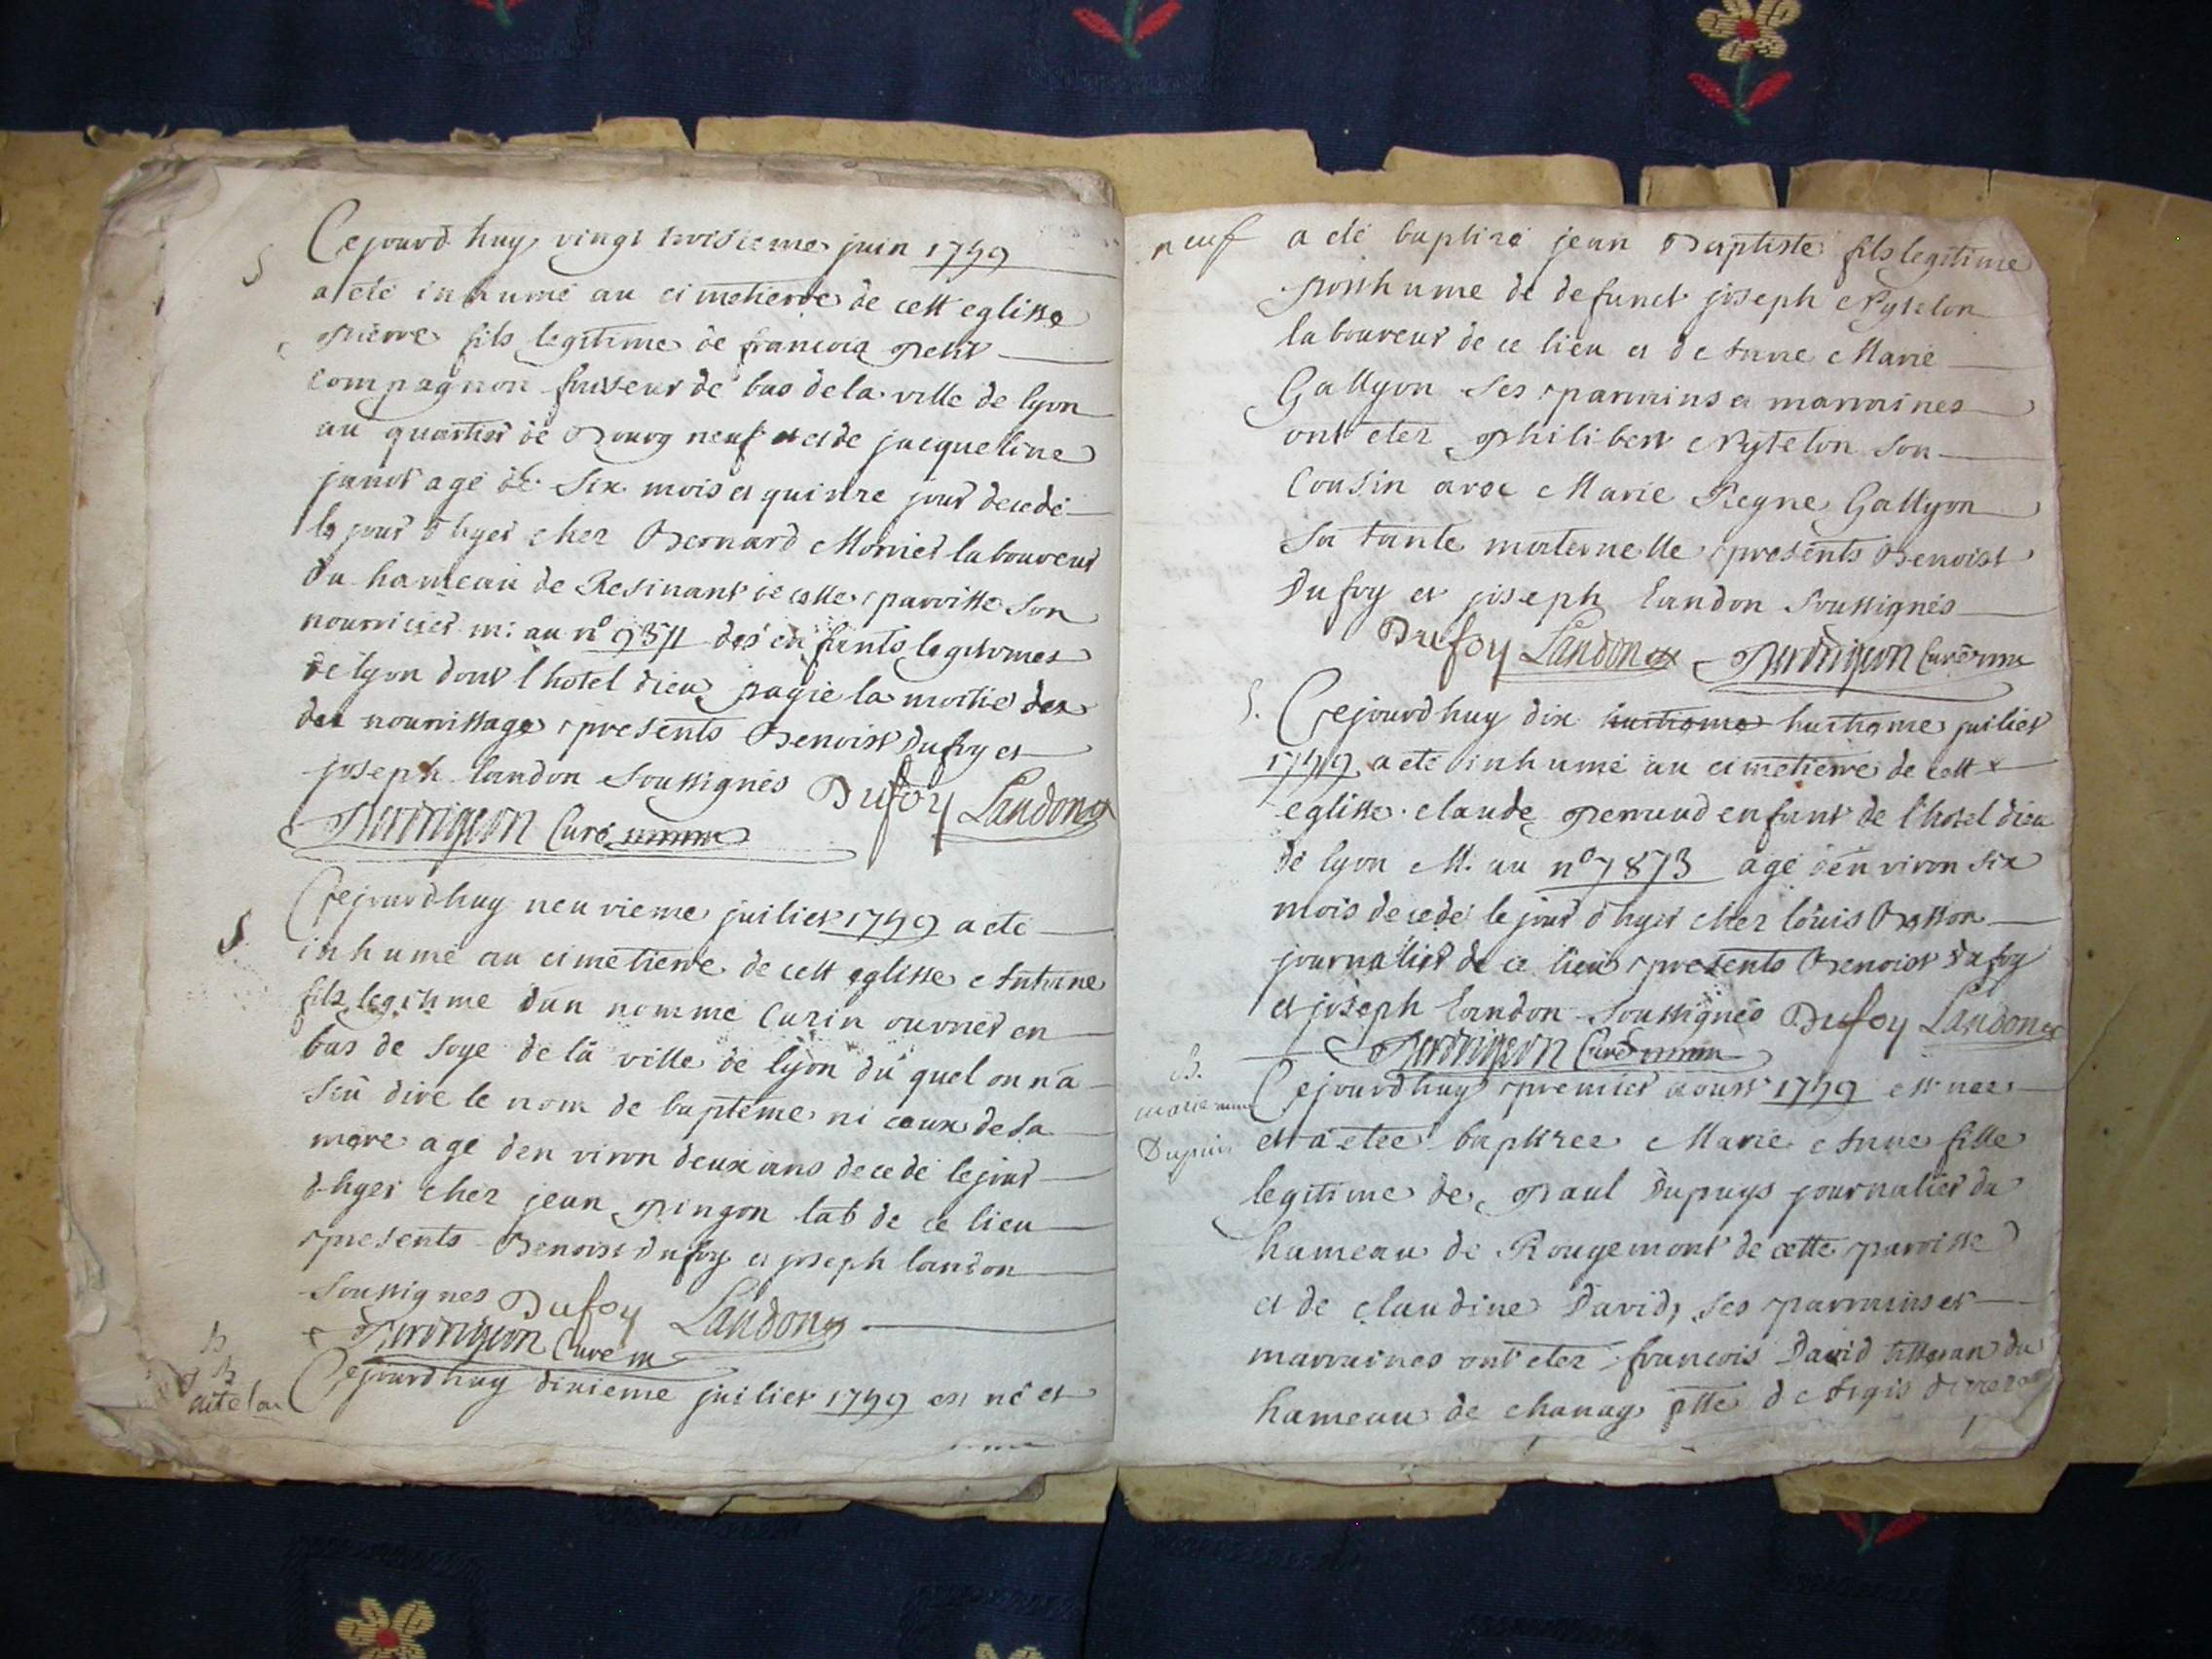 S Cejourd huy vingt troisieme juin 1759
a eté inhumé au cimetierre de cett eglisse
pierre fils legitime de francois petit
compagnon faisseur de bas de la ville de lyon
au quartier de Bourg neuf et de jacqueline
janot agé de six mois et quinze jour decedé
le jour d'hyer cher Bernard Monier laboureur
du hameau de Resinant de cette parroisse son
nourricier m: au n° des enfants legitimes
de lyon dont l hotel dieu paÿie la moitié des
des nourrissage presents Benoist Dufoy et
joseph Landon soussignés Dufoy Landon
Curé
S Cejourdhuy neuvieme juiliet 1759 a eté
inhumé au cimetierre de cett eglisse Antoine
fils legitime dun nommé Curin ouvrier en
bas de soye de la ville de lyon du quel on n'a
sçu dire le nom de baptême ni ceux de sa
mere agé d'environ deux ans decedé le jour
d-hyer cher jean pingon lab de ce lieu
presents Benoist Dufoy et joseph landon
soussignes Dufoy Landon
Curé
Cejourdhuy dixieme juiliet 1759 est né et
a eté baptizé jean Baptiste fils legitime
posthume de defunct joseph Nytelon
laboureur de ce lieu et de Anne Marie
Gallyon ses parrains et marraines
ont etez philibert Nytelon son
cousin avec Marie Regne Gallyon
sa tante maternelle presents Benoist
Dufoy et joseph landon soussignés
Dufoy Landon Curé
S. Cejourdhuy dix huitieme huitieme juiliet
1759 a eté inhumé au cimetierre de cett
eglisse claude enfant de l'hotel dieu
de lyon M. au n° 7873 agé d'environ six
mois decedé le jour d'hyer cher louis
journalier de ce lieu presents Benoist Dufoy
et joseph landon soussignés Dufoy Landon
Curé
B. Cejourdhuy premier aoust 1759 est nee
Marie
Dupuis et a etee baptizee Marie Anne fille
legitime de Paul Dupuys journalier du
hameau de Rougemont de cette parroisse
et de claudine David, ses parrains et
marraines ont etez francois David tisseran du
hameau de chanay ptte d'Aigis